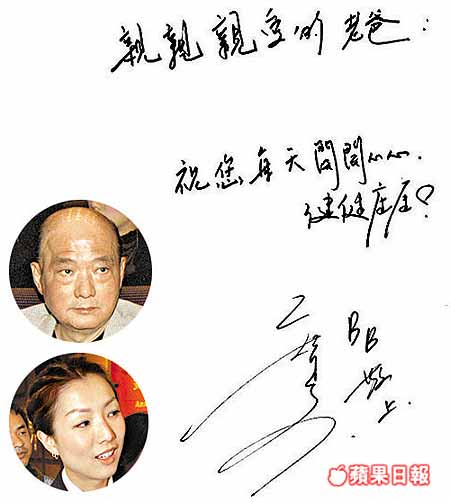 親親親愛的老爸：
祝您每天開開心心.
健健康康
BB
上.
蘋果日報